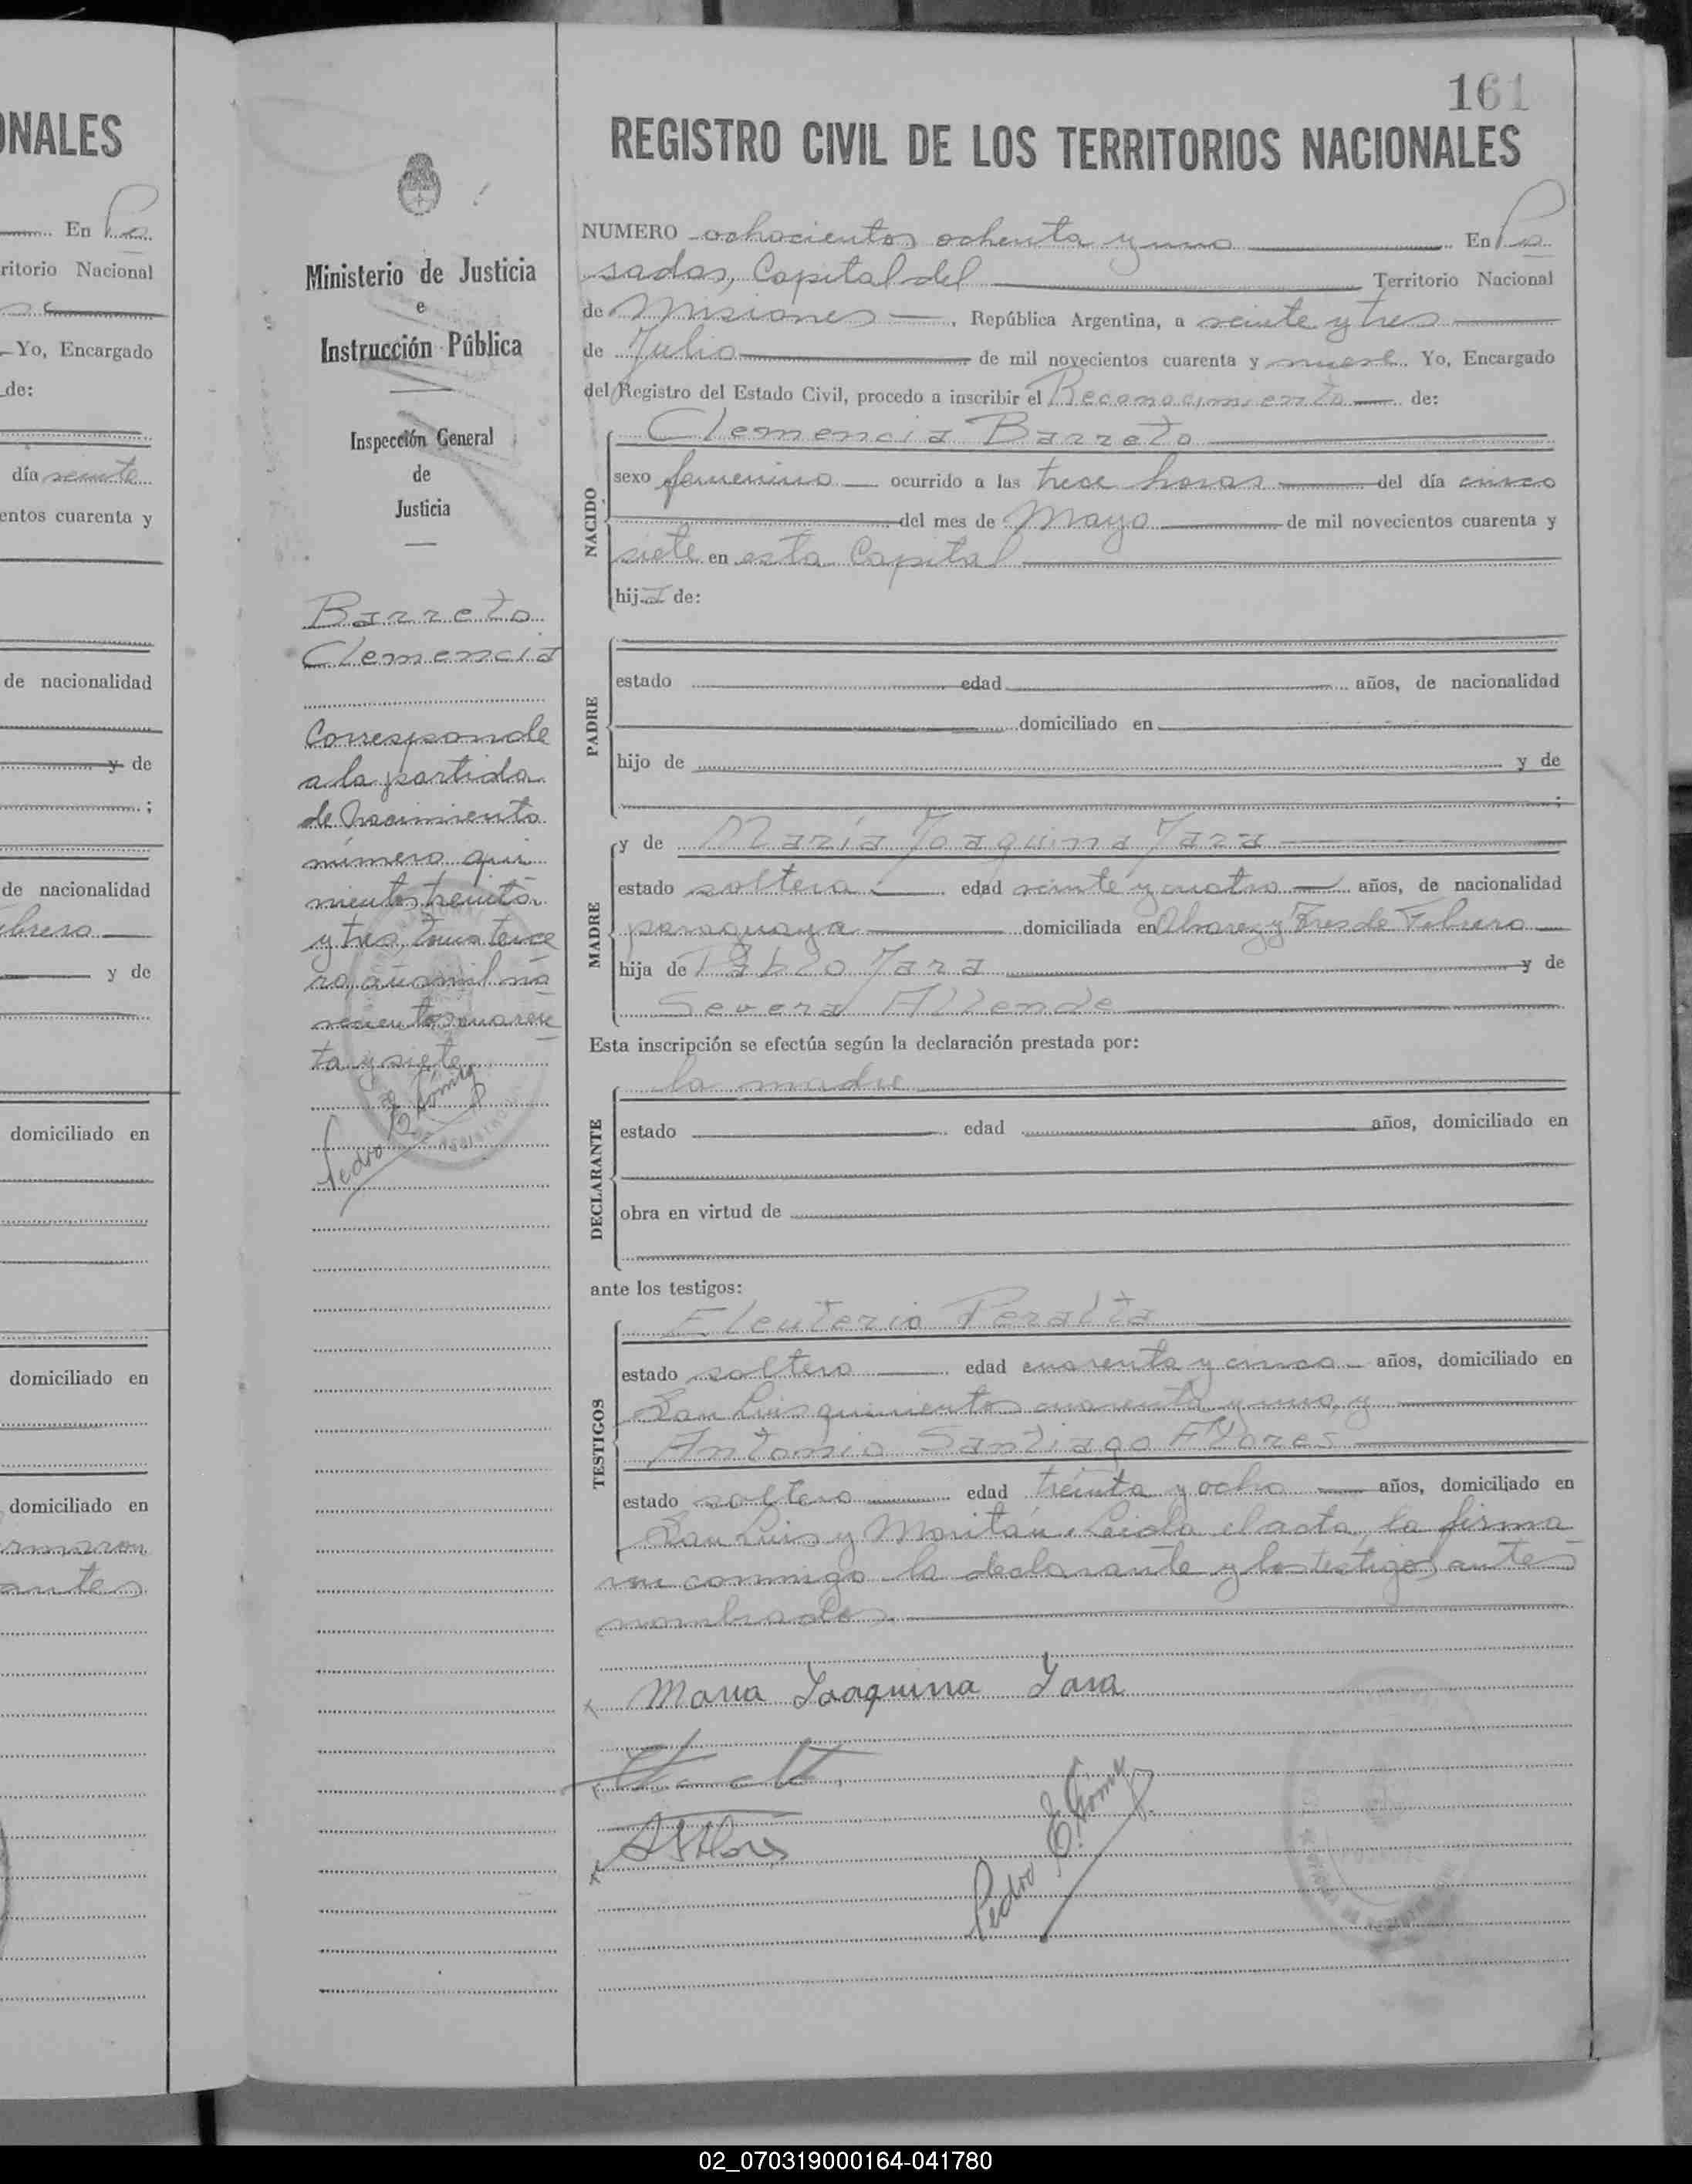 ONALES
En Po
ritorio Nacional
Yo, Encargado
de:
día veinte
entos cuarenta y
de nacionalidad
y de
;
de nacionalidad
Febrero
y de
domiciliado en
domiciliado en
domiciliado en
antes
Ministerio de Justicia
e
Instrucción Pública
Inspección General
de
Justicia
Barreto
Clemencia
Corresponde
a la partida
de Nacimiento
número qui
nientos treinta
y tres, tomo terce
ro, año mil no
vecientos cuaren
ta y siete
Pedro E. Gómez
161
REGISTRO CIVIL DE LOS TERRITORIOS NACIONALES
NUMERO ochocientos ochenta y uno En Po
sadas, Capital del Territorio Nacional
de Misiones, República Argentina, a veinte y tres
de Julio de mil novecientos cuarenta y nueve. Yo, Encargado
del Registro del Estado Civil, procedo a inscribir el Reconocimiento de:
Clemencia Barreto
NACIDO
sexo femenino ocurrido a las trece horas del día cinco
del mes de Mayo de mil novecientos cuarenta y
siete en esta Capital
hija de:
PADRE
estado edad años, de nacionalidad
domiciliado en
hijo de y de
;
MADRE
y de María Joaquina Jara
estado soltera edad veinte y cuatro años, de nacionalidad
paraguaya domiciliada en Alvarez y Tres de Febrero
hija de Pablo Jara y de
Severa Allende
Esta inscripción se efectúa según la declaración prestada por:
DECLARANTE
la madre
estado edad años, domiciliado en
obra en virtud de
ante los testigos:
TESTIGOS
Eleuterio Peralta
estado soltero edad cuarenta y cinco años, domiciliado en
San Luis quinientos cuarenta y uno, y
Antonio Santiago Flores
estado soltero edad treinta y ocho años, domiciliado en
San Luis y Moritán. Leida el acta, la firma
ron conmigo la declarante y los testigos antes
nombrados.
Maria Joaquina Jara
ASFlores
Pedro E. Gómez
02_070319000164-041780